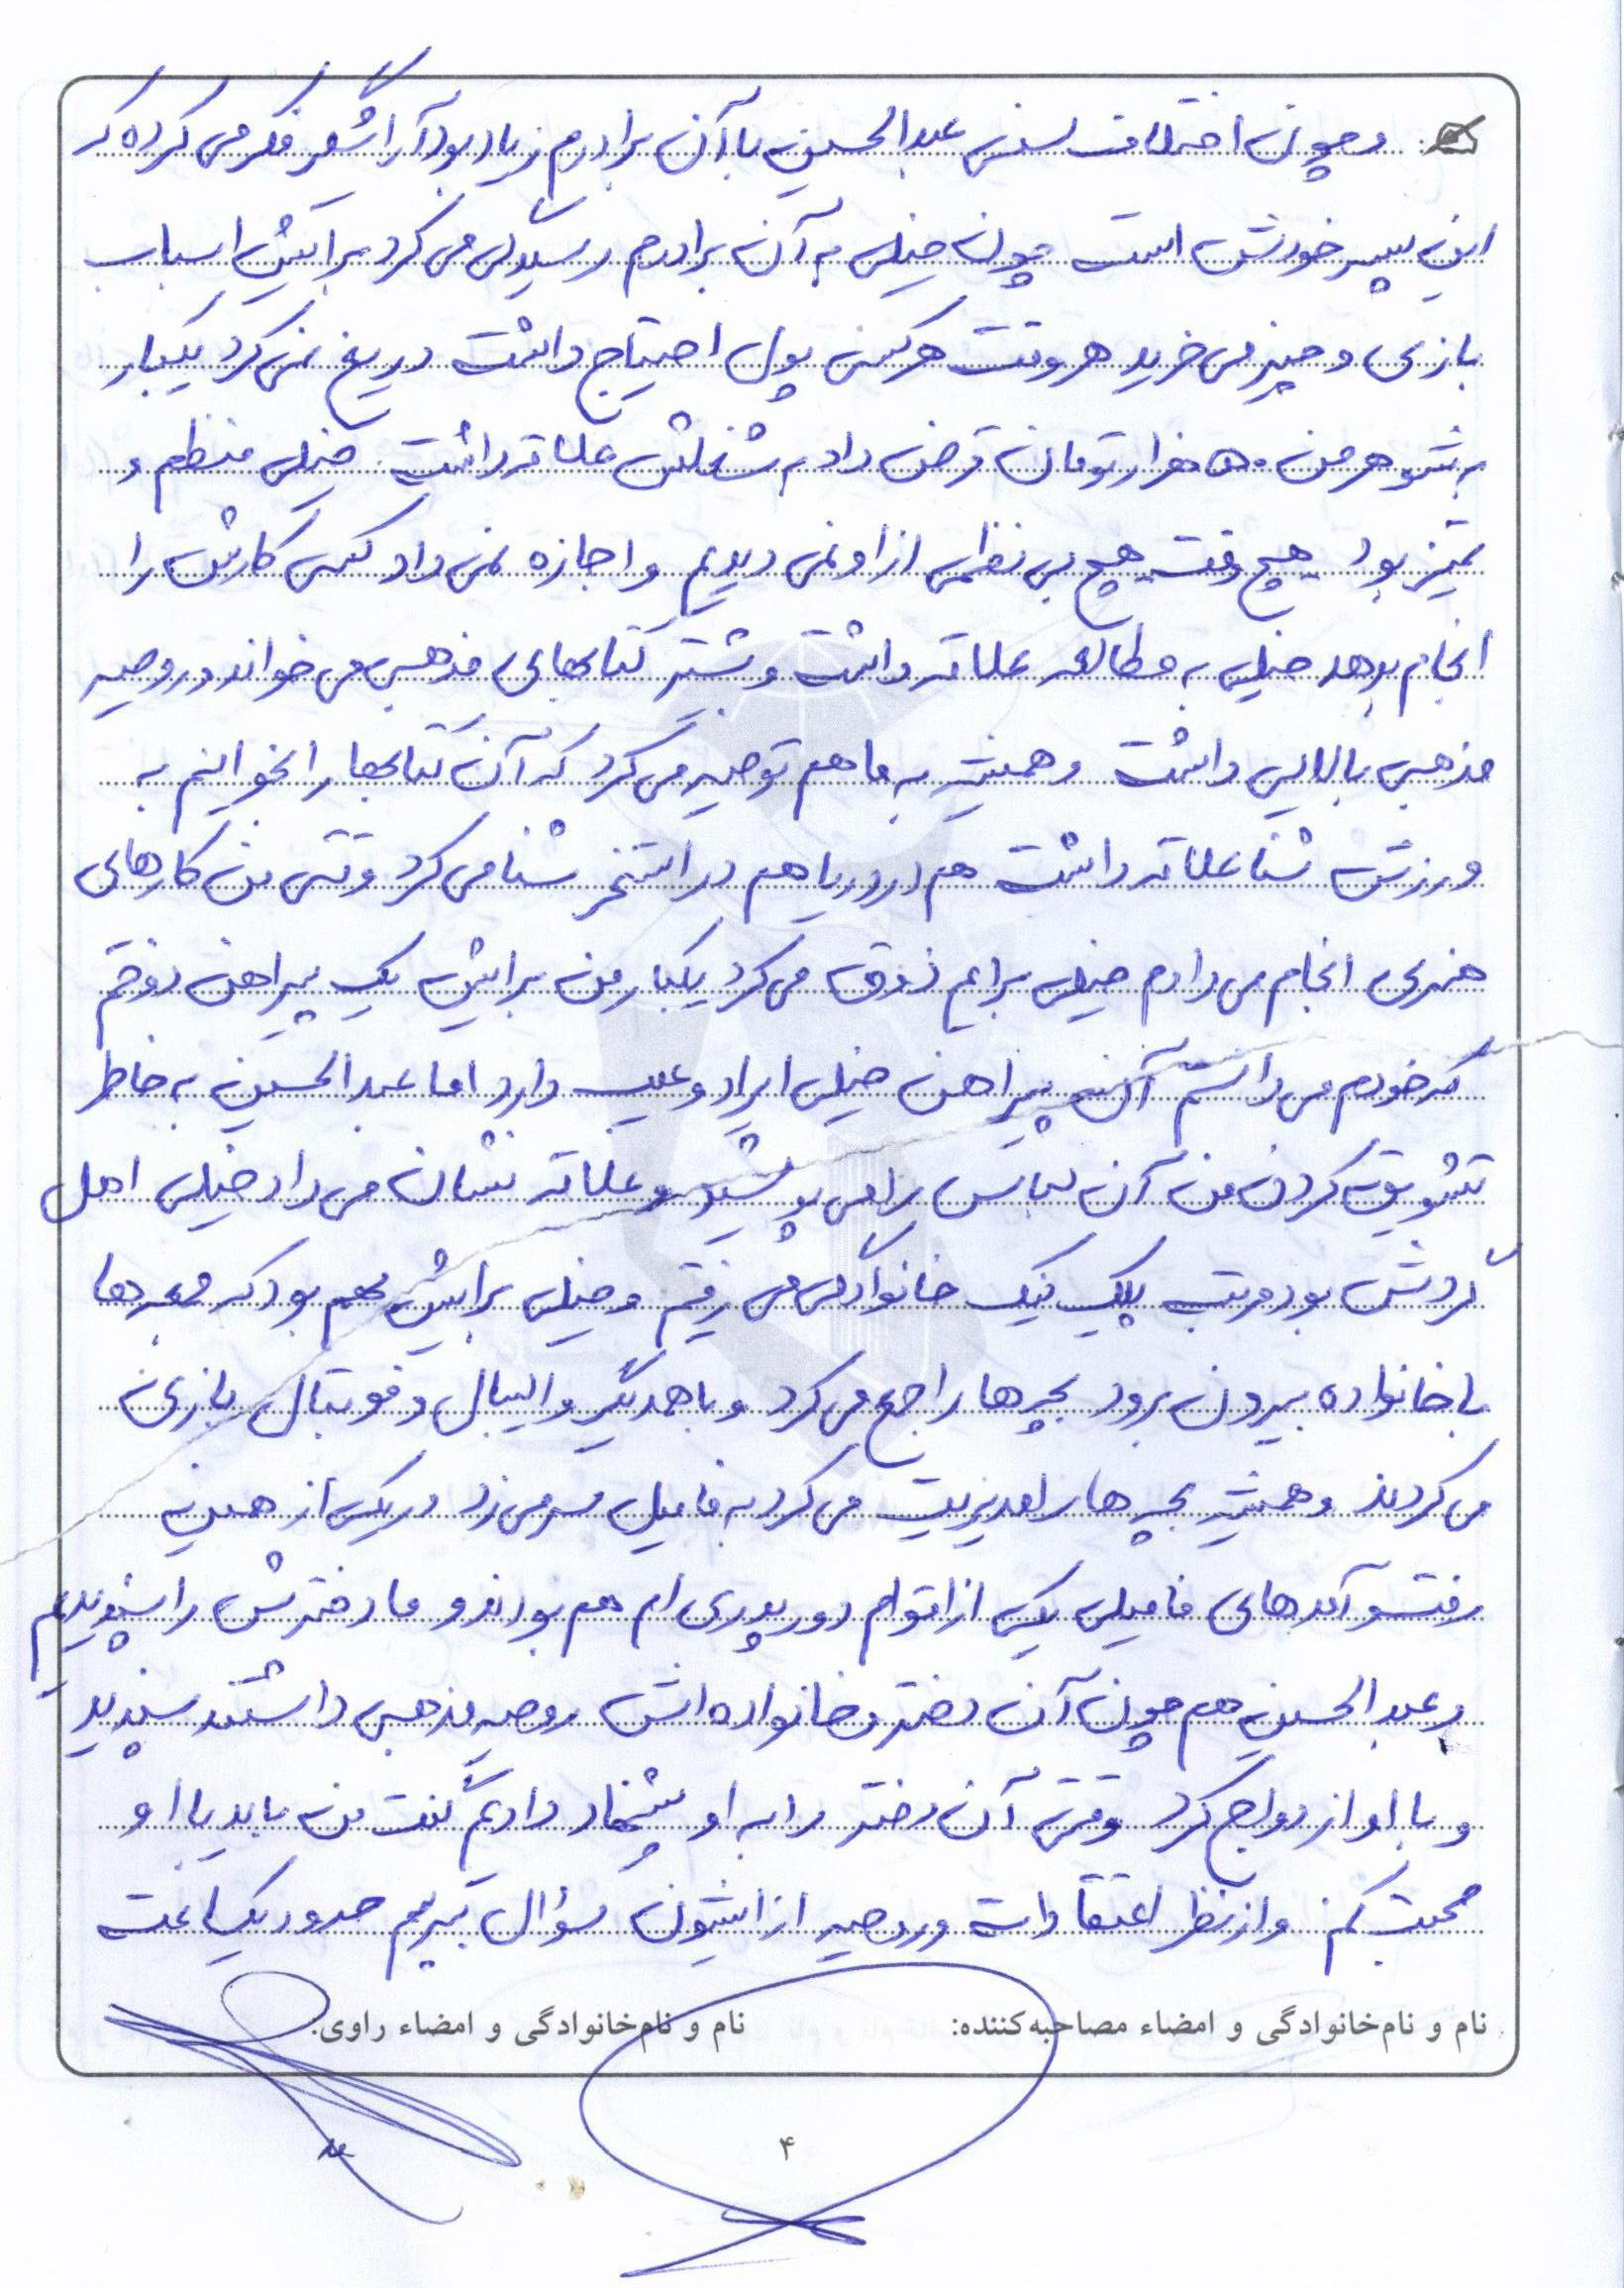 و چون اختلاف سنی عبدالحسین با آن برادرم زیاد بود آراشگر فکر می کرده که
این پسر خودش است چون خیلی به آن برادرم رسیدگی می کرد برایش اسباب
بازی و چیز می خرید هر وقت هرکسی پول احتیاج داشت دریغ نمی کرد یکبار
به شوهر من ۵۰ هزار تومان قرض داد به شغلش علاقه داشت. خیلی منظم و
تمیز بود هیچ وقت هیچ بی نظمی از او نمی دیدیم و اجازه نمی داد کسی کارش را
انجام بدهد خیلی به مطالعه علاقه داشت و بیشتر کتابهای مذهبی می خواند و روحیه
مذهبی بالایی داشت و همیشه به ما هم توصیه می کرد که آن کتابها را بخوانیم به
ورزش شنا علاقه داشت هم در دریا هم در استخر شنا می کرد وقتی من کارهای
هنری انجام می دادم خیلی برایم ذوق می کرد یکبار من برایش یک پیراهن دوختم
که خودم می دانستم آن پیراهن خیلی ایراد و عیب دارد اما عبدالحسین به خاطر
تشویق کردن من آن لباس را می پوشید و علاقه نشان می داد خیلی اهل
گردش بود مرتب پیک نیک خانوادگی می رفتیم و خیلی برایش مهم بود که مجردها
با خانواده بیرون برود بچه ها را جمع می کرد و با همدیگر والیبال و فوتبال بازی
می کردند و همیشه بچه ها را مدیریت می کرد به فامیل سر می زد در یکی از همین
رفت و آمدهای فامیلی یکی از اقوام دور پدری ام هم بودند و ما دخترش را پسندیدیم
و عبدالحسین هم چون آن دختر و خانواده اش روحیه مذهبی داشتند پسندید
و با او ازدواج کرد وقتی آن دختر را به او پیشنهاد دادیم گفت من باید با او
صحبت کنم و از نظر اعتقادات و روحیه از ایشون سؤال بپرسم حدود یک ساعت
نام و نام‌خانوادگی و امضاء مصاحبه‌کننده:
نام و نام‌خانوادگی و امضاء راوی:
۴